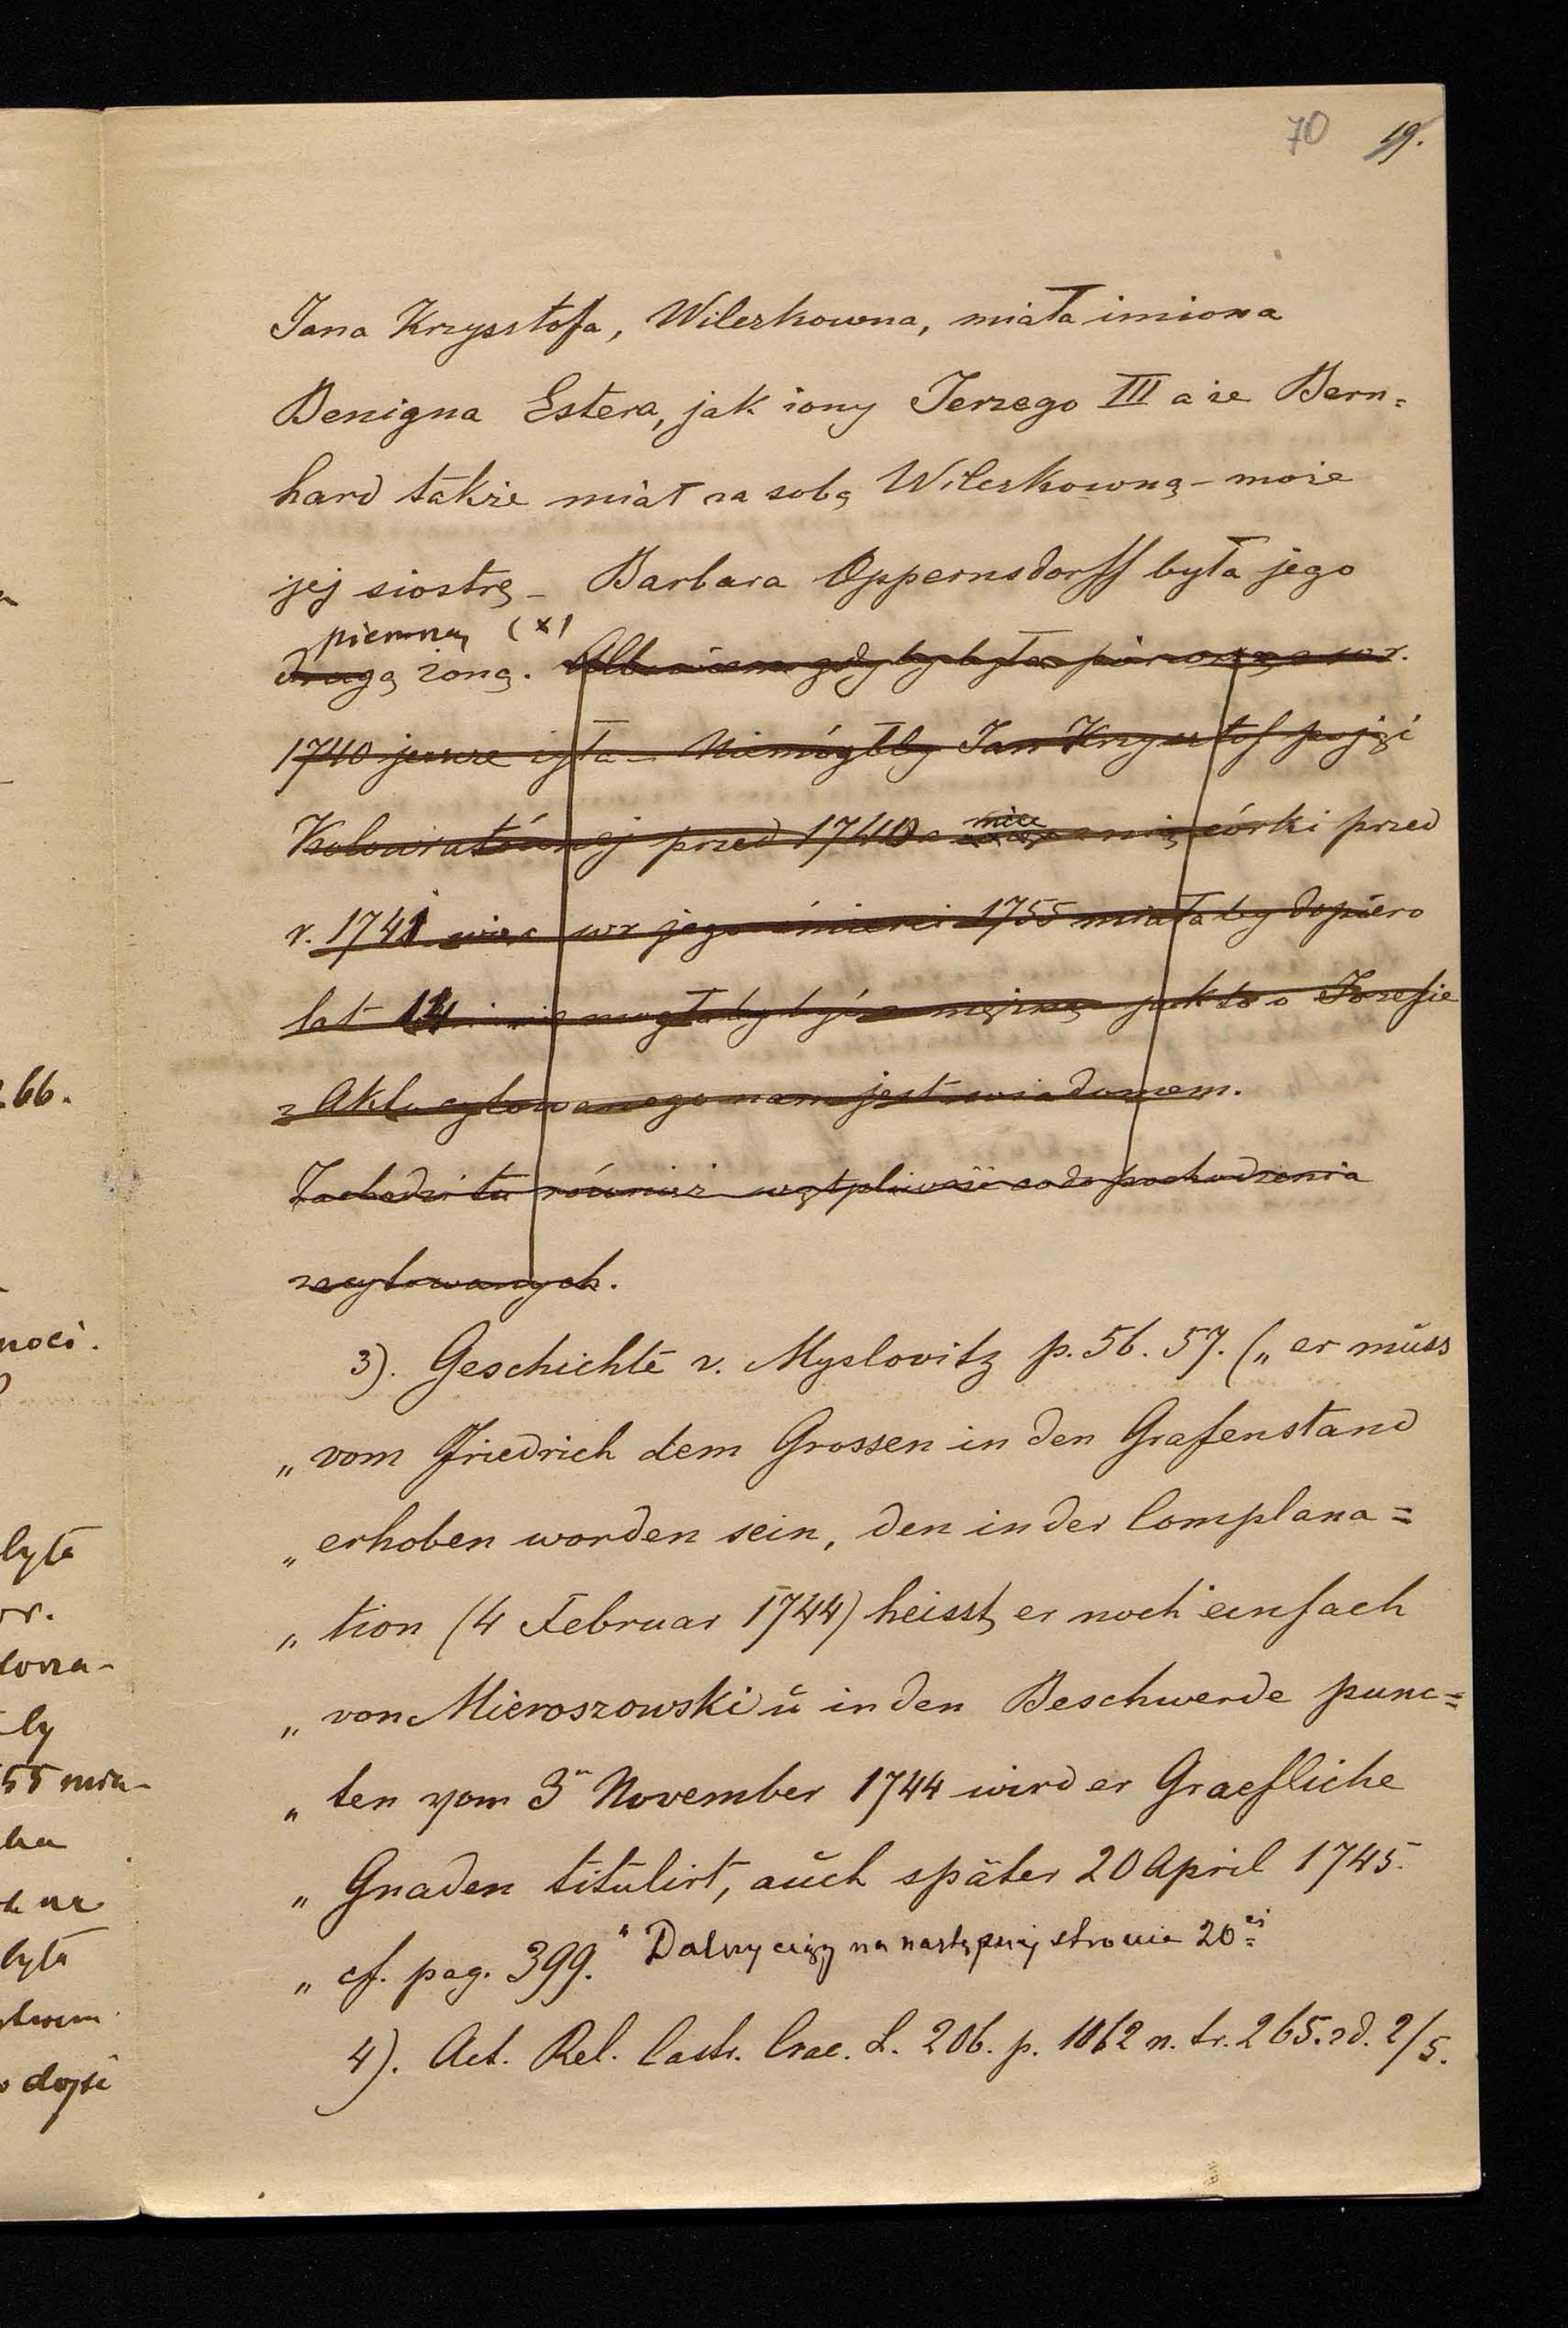 70 19.
Jana Krzysztofa, Wilczkowna, miała imiona
Benigna Estera, jak żony Jerzego III a że Bern=
hard także miał za sobą Wilczkowną - może
jej siostrę - Barbara Oppernsdorff była jego
pierwszą (x)
drugą żoną. Albowiem gdyby była pierwszą a w r.
1740 jeszcze żyła - Niemógłby Jan Krzysztof pojąć
Kolowratównej przed 1740 a mieć z nią córki przed
r. 1741 więc w r jego śmierci 1755 miałaby dopiero
lat 14 i nie mogłaby być zamężną jak to o Jozefie
z Aktu cytowanego nam jest wiadomem.
Zachodzi tu również wątpliwość co do pochodzenia
zacytowanych.
3). Geschichte v. Myslovitz p. 56. 57. („ er müss
„ vom Friedrich dem Grossen in den Grafenstand
„ erhoben worden sein, den in der Complana=
„ tion (4 Februar 1744) heisst er noch einfach
„ von Mieroszowski ŭ in den Beschwerde punc=
„ ten vom 3n November 1744 wird er Graefliche
„ Gnaden titulirt, aŭch später 20 April 1745.
„ cf. pag. 399." Dalszy ciąg na następnej stronie 20ei
4). Act. Rel. Castr. Crac. L. 206. p. 1062 n. tr. 265. zd. 2/5.
66.
noci.
była
wr.
by
55 mia-
była
dojść